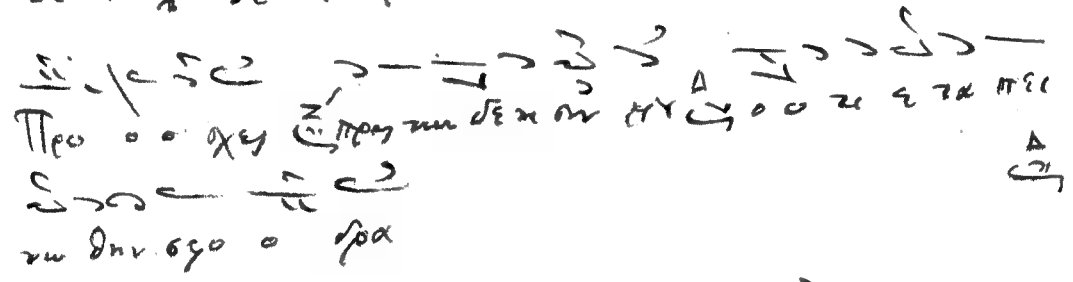 Προ ο ο σχες προς την δε η σιν μου ο ο τι ε τα πει
νω θην σφο ο δρα